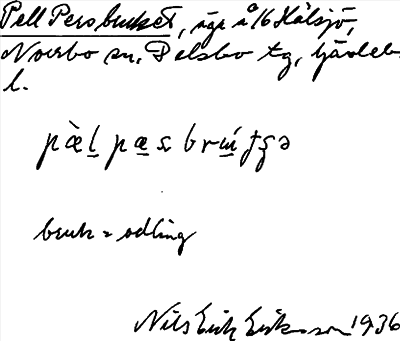 Pell Persbruket, äga å 16 Hålsjö,
Norrbo sn, Delsbo tg, Gävleb.
l.
pæ̀l pæs brɯ́tʃə
bruk = odling
Nils Erik Eriksson 1936